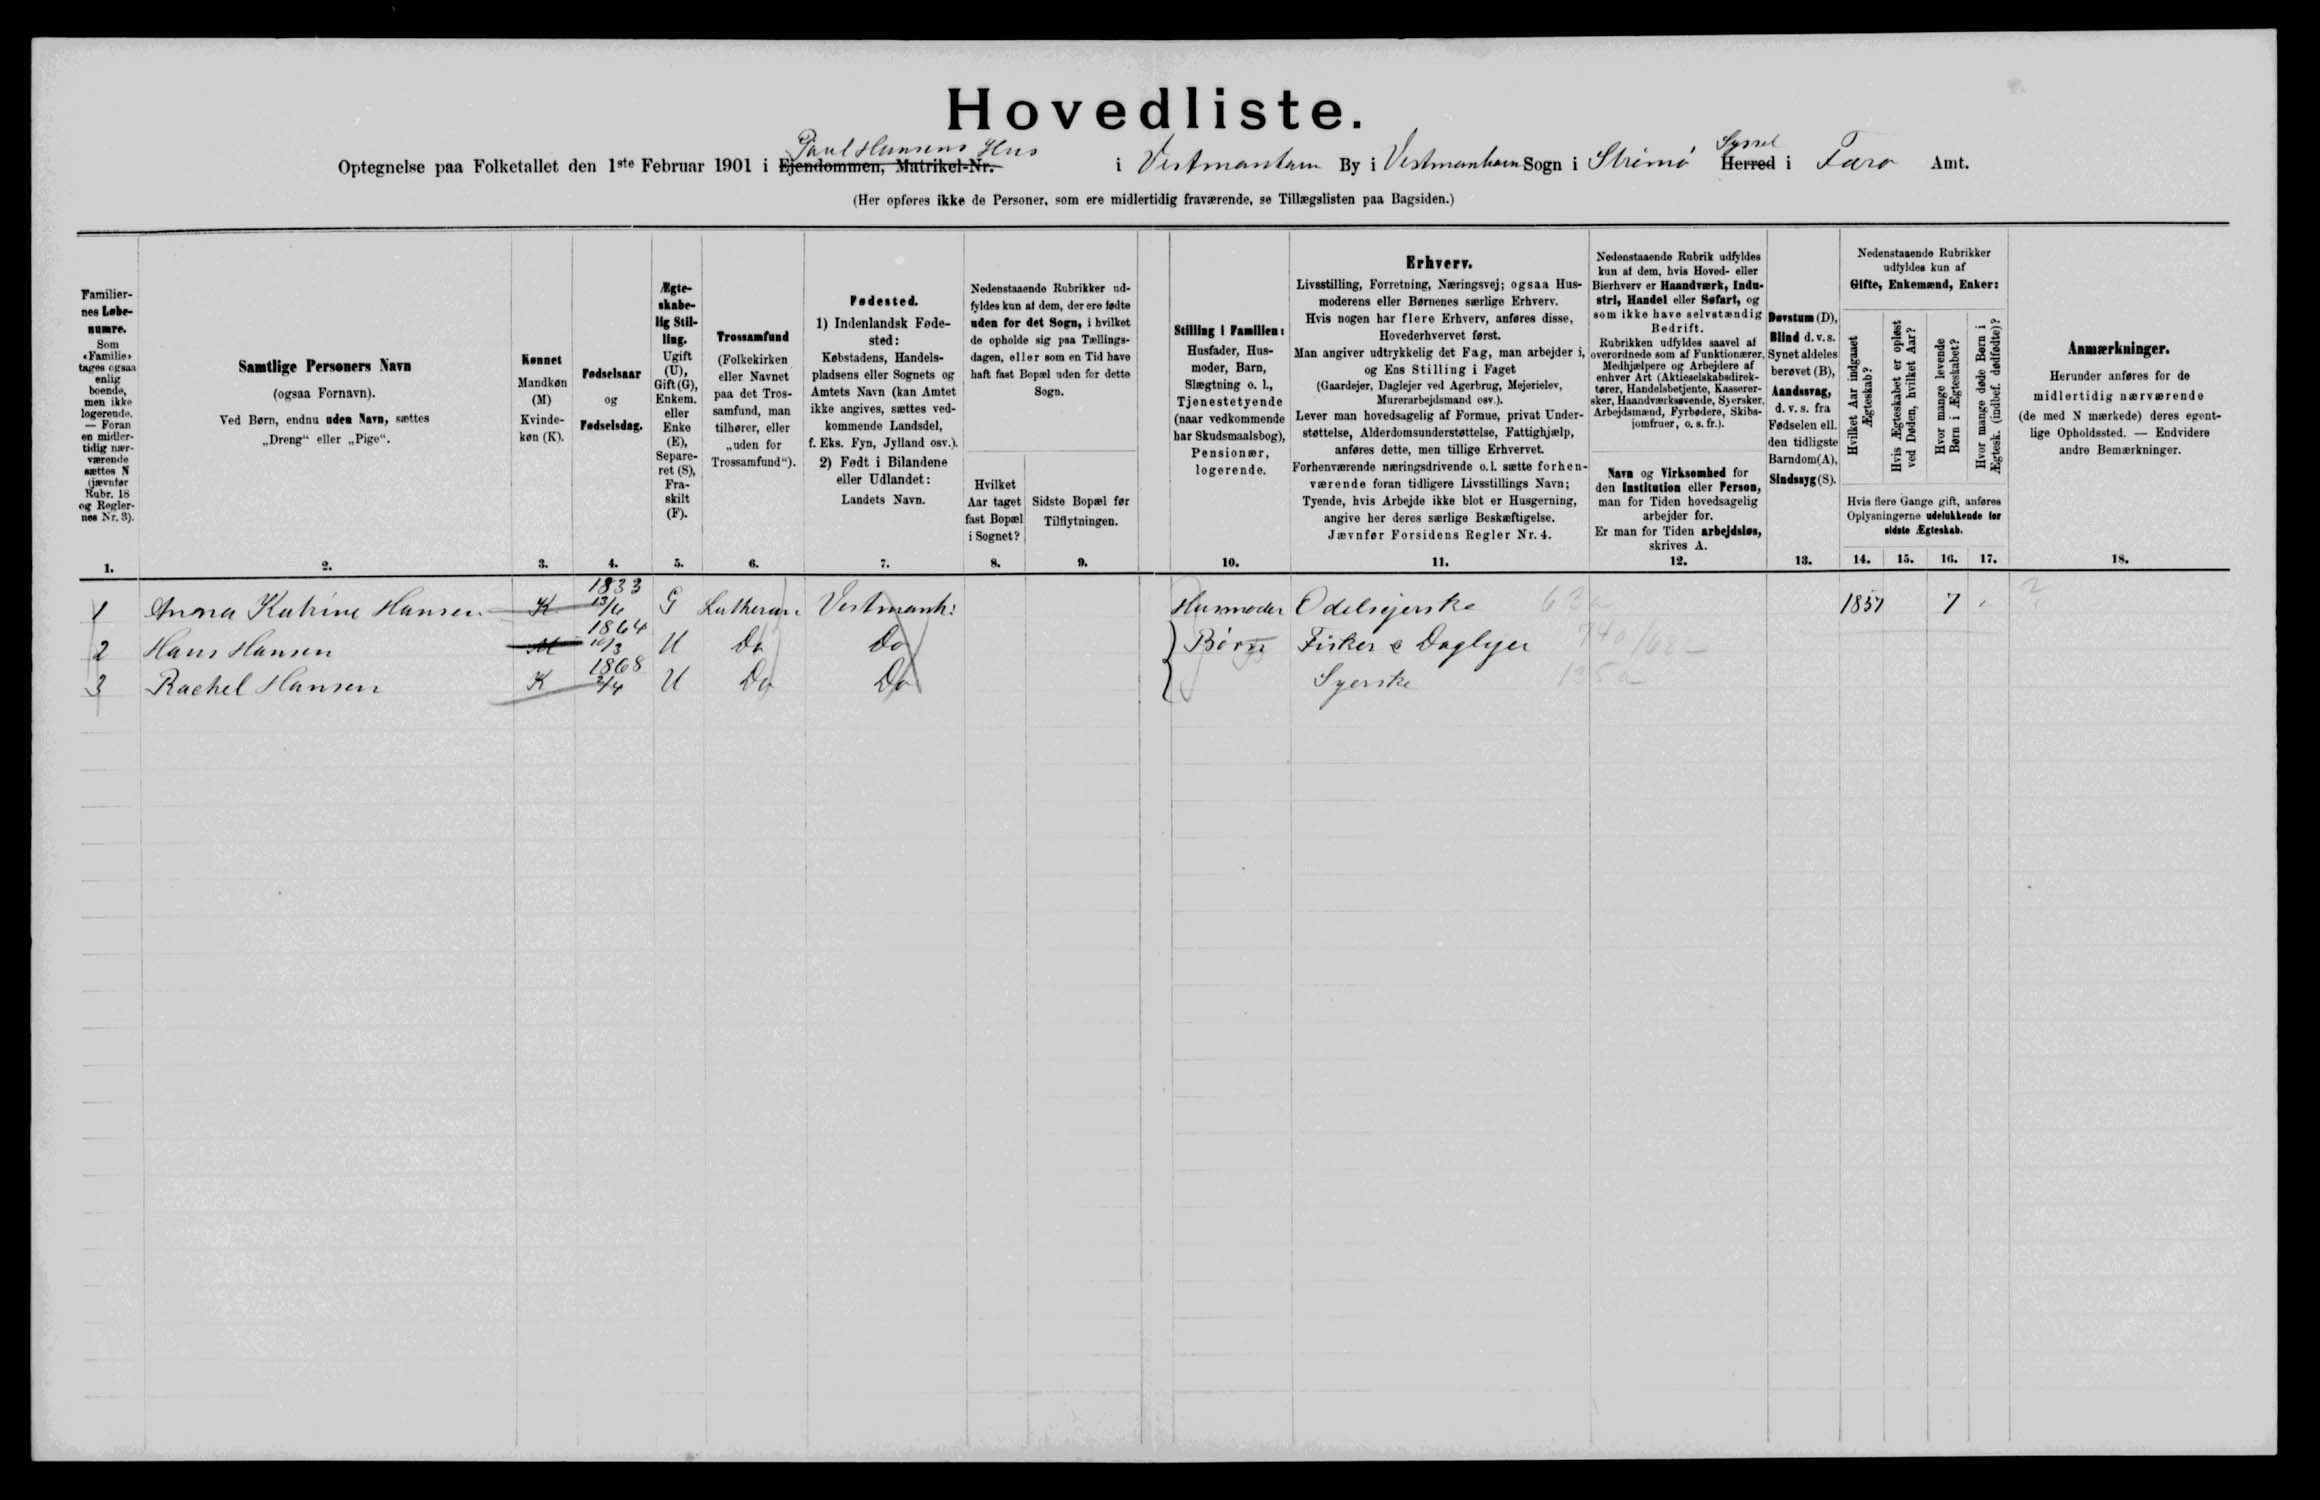 Hovedliste.
Paul Hansens Hus
Syssel
Optegnelse paa Folketallet den 1ste Februar 1901 i Ejendommen, Matrikel-Nr. i Vestmanhavn By i Vestmanhavn Sogn i Strömö Herred i Færø Amt.
(Her opføres ikke de Personer, som ere midlertidig fraværende, se Tillægslisten paa Bagsiden.)
Familier-
nes Løbe-
numre.
Som
«Familie»
tages ogsaa
enlig
boende,
men ikke
logerende.
— Foran
en midler-
tidig nær-
værende
sættes N
(jævnfør
Rubr. 18
og Regler-
nes Nr. 3).
1.
Samtlige Personers Navn
(ogsaa Fornavn).
Ved Børn, endnu uden Navn, sættes
„Dreng“ eller „Pige“.
2.
Kønnet
Mandkøn
(M)
Kvinde-
køn (K).
3.
Fødselsaar
og
Fødselsdag.
4.
Ægte-
skabe-
lig Stil-
ling.
Ugift
(U),
Gift (G),
Enkem.
eller
Enke
(E),
Separe-
ret (S),
Fra-
skilt
(F).
5.
Trossamfund
(Folkekirken
eller Navnet
paa det Tros-
samfund, man
tilhører, eller
„uden for
Trossamfund“).
6.
Fødested.
1) IndenlandskFøde-
sted:
Købstadens, Handels-
pladsens eller Sognets og
Amtets Navn (kan Amtet
ikke angives, sættes ved-
kommende Landsdel,
f. Eks. Fyn, Jylland osv.).
2) Født i Bilandene
eller Udlandet:
Landets Navn.
7.
Nedenstaaende Rubrikker ud-
fyldes kun af dem, der ere fødte
uden for det Sogn, i hvilket
de opholde sig paa Tællings-
dagen, eller som en Tid have
haft fast Bopæl uden for dette
Sogn.
Hvilket
Aar taget
fast Bopæl
i Sognet?
8.
Sidste Bopæl før
Tilflytningen.
9.
Stilling i Familien:
Husfader, Hus-
moder, Barn,
Slægtning o. l.,
Tjenestetyende
(naar vedkommende
har Skudsmaalsbog),
Pensionær,
logerende.
10.
Erhverv.
Livsstilling, Forretning, Næringsvej; ogsaa Hus-
moderens eller Børnenes særlige Erhverv.
Hvis nogen har flere Erhverv, anføres disse,
Hovederhvervet først.
Man angiver udtrykkelig det Fag, man arbejder i,
og Ens Stilling i Faget
(Gaardejer, Daglejer ved Agerbrug, Mejerielev,
Murerarbejdsmand osv.).
Lever man hovedsagelig af Formue, privat Under-
støttelse, Alderdomsunderstøttelse, Fattighjælp,
anføres dette, men tillige Erhvervet.
Forhenværende næringsdrivende o. l. sætte forhen-
værende foran tidligere Livsstillings Navn;
Tyende, hvis Arbejde ikke blot er Husgerning,
angive her deres særlige Beskæftigelse.
Jævnfør Forsidens Regler Nr. 4.
11.
Nedenstaaende Rubrik udfyldes
kun af dem, hvis Hoved- eller
Bierhverv er Haandværk, Indu-
stri, Handel eller Søfart, og
som ikke have selvstændig
Bedrift.
Rubrikken udfyldes saavel af
overordnede som af Funktionærer,
Medhjælpere og Arbejdere af
enhver Art (Aktieselskabsdirek-
tører, Handelsbetjente, Kasserer-
sker, Haandværkssvende, Syersker,
Arbejdsmænd, Fyrbødere, Skibs-
jomfruer, o. s. fr.).
Navn og Virksomhed for
den Institution eller Person,
man for Tiden hovedsagelig
arbejder for.
Er man for Tiden arbejdsløs,
skrives A.
12.
Døvstum (D),
Blind d. v. s.
Synet aldeles
berøvet (B),
Aandssvag,
d. v. s. fra
Fødselen ell.
den tidligste
Barndom (A),
Sindssyg (S).
13.
Nedenstaaende Rubrikker
udfyldes kun af
Gifte, Enkemænd, Enker:
Hvilket Aar indgaaet
Ægteskab?
Hvis Ægteskabet er opløst
ved Døden, hvilket Aar?
Hvor mange levende
Børn i Ægteskabet?
Hvor mange døde Børn i
Ægtesk. (indbef. dødfødte)?
Hvis flere Gange gift, anføres
Oplysningerne udelukkende for
sidste Ægteskab.
14. 15. 16. 17.
Anmærkninger.
Herunder anføres for de
midlertidig nærværende
(de med N mærkede) deres egent-
lige Opholdssted. — Endvidere
andre Bemærkninger.
18.
1 Anna Katrine Hansen K 1833 13/6 G Lutheran Vestmanh: Husmoder Odelsejerske 63a 1857 7 ?
2 Hans Hansen M 1864 U Do Do Børn Fisker & Daglejer
3 Rachel Hansen K 1868 2/4 U Do Do Syerske 135a